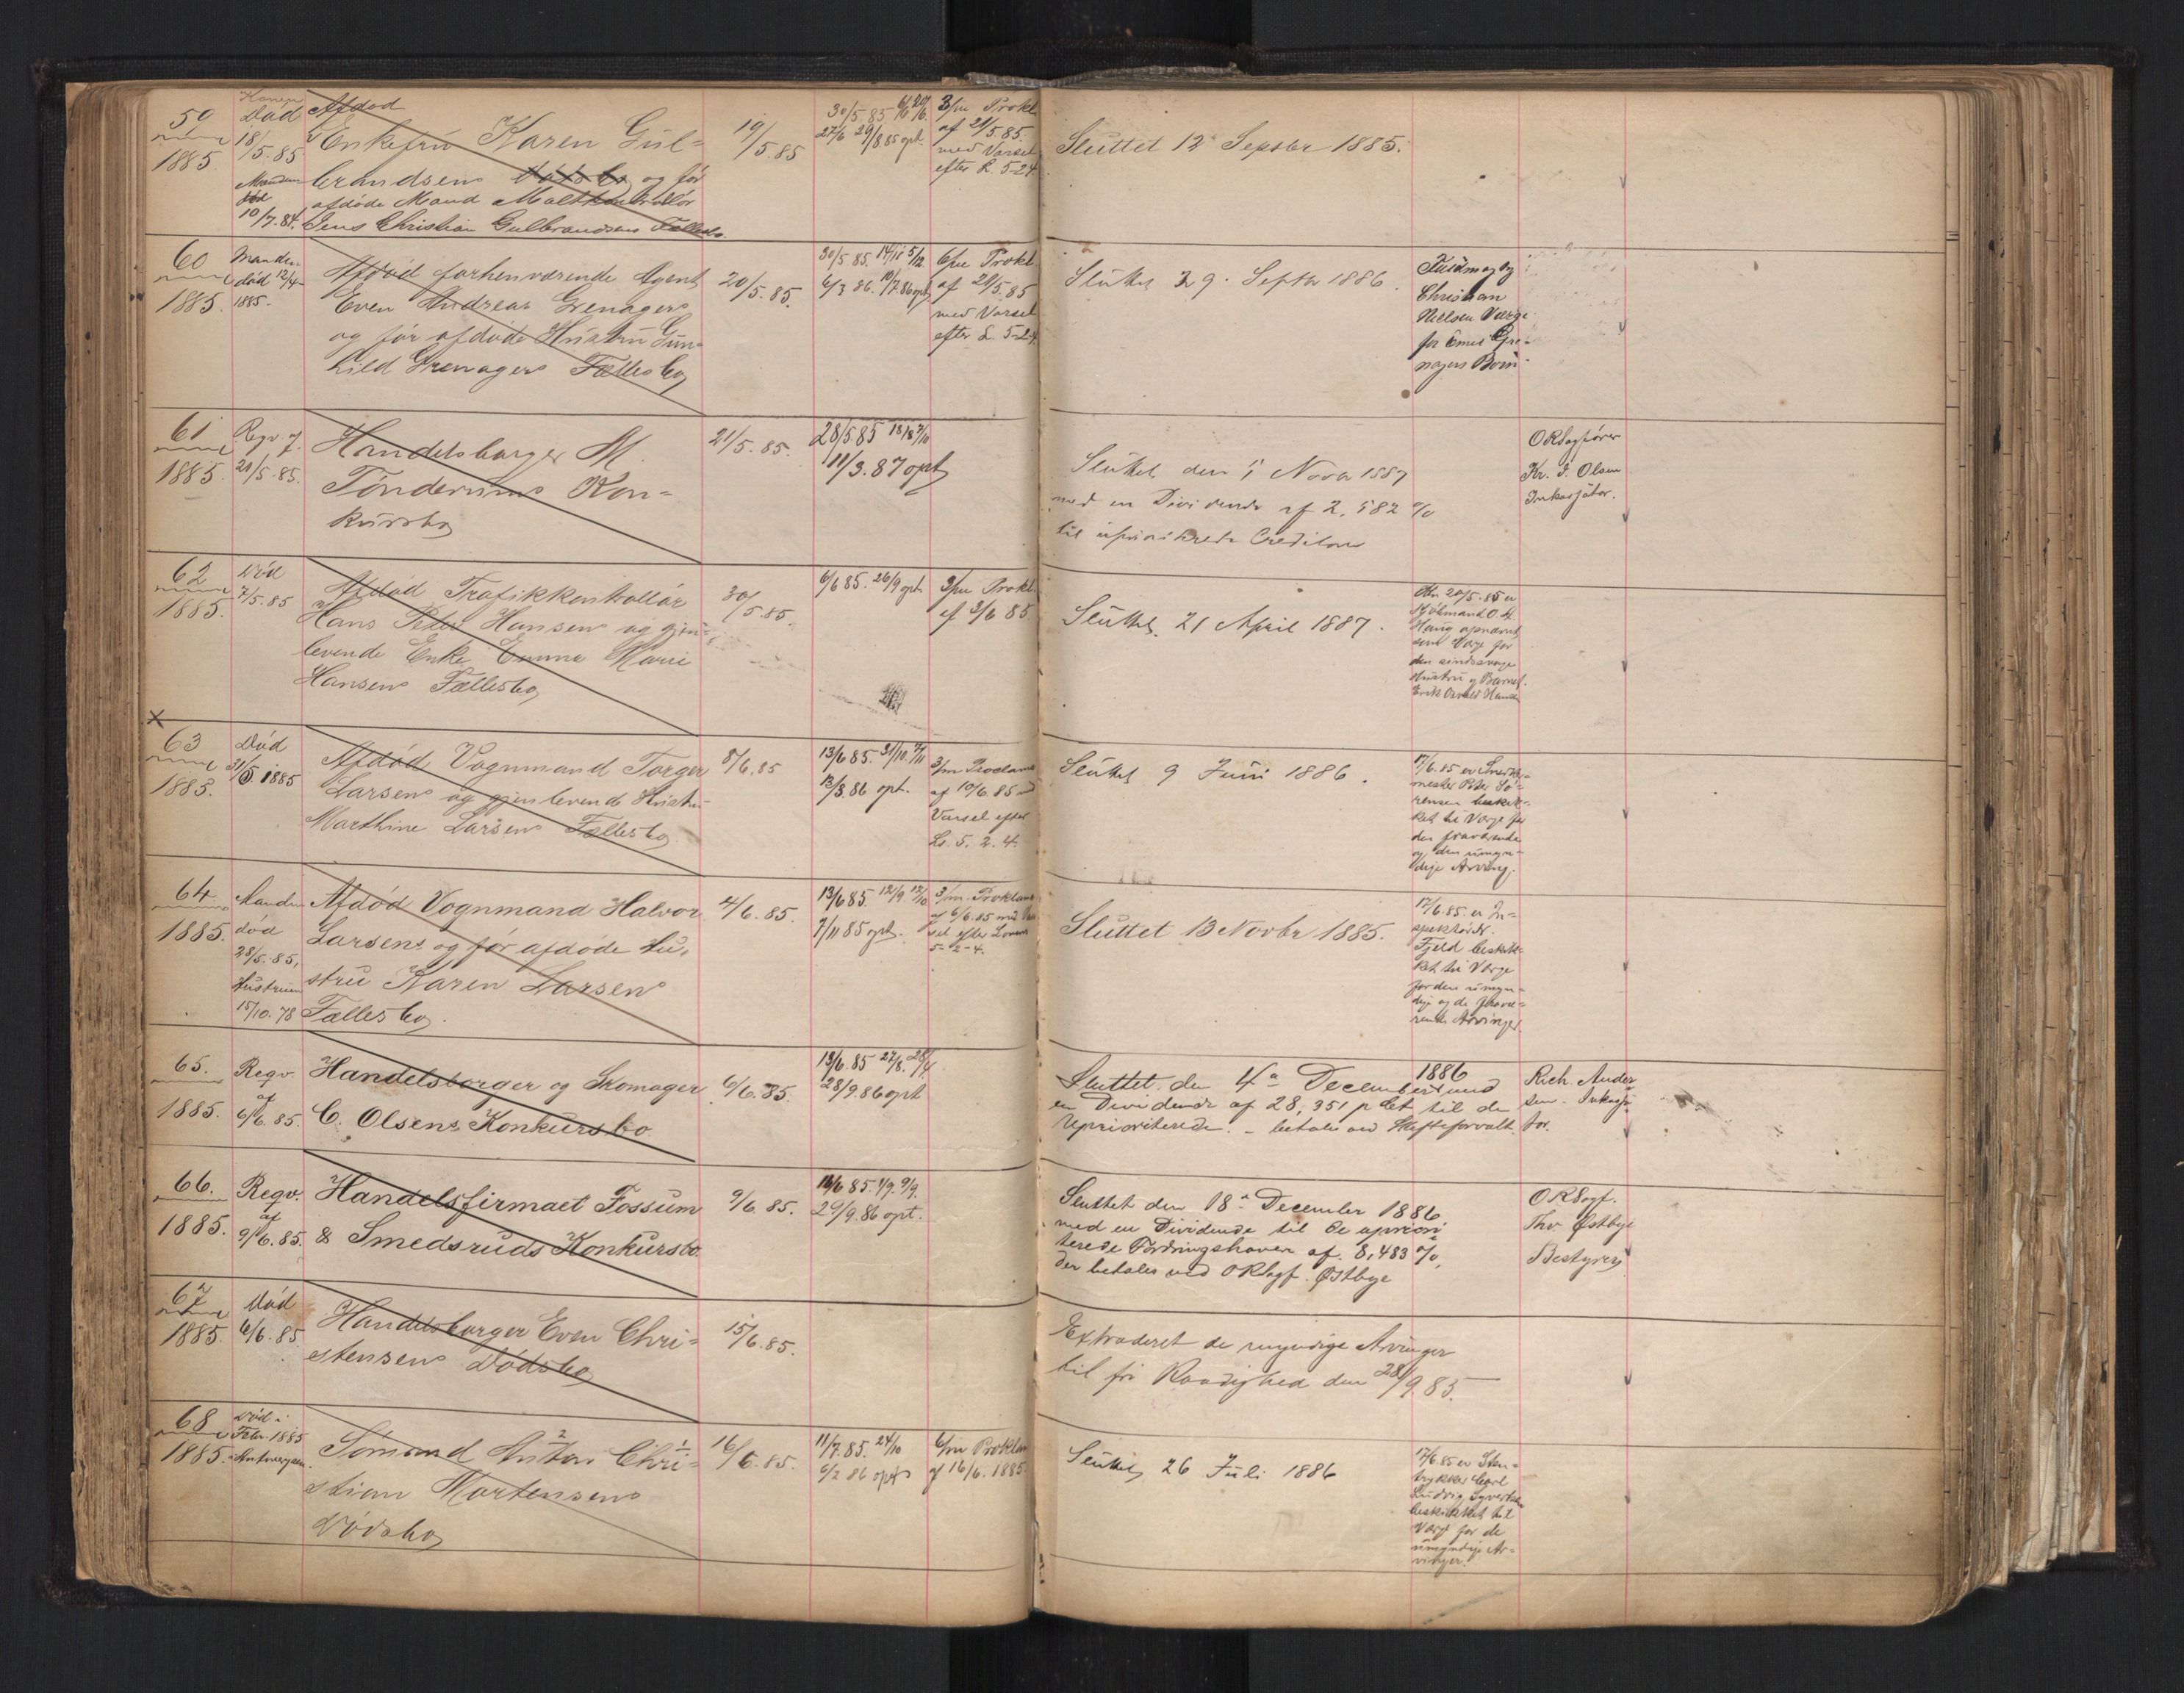 59
1885.
Konen
Død
18/5.85.
Manden
død
10/7.84.
Afdød
Enkefru Karen Gul-
brandsens Dødsbo og før
afdøde Mand Maltkontrollør
Jens Christian Gulbrandsens Fællesbo
19/5.85
30/5 85
27/6 29/8 85 opt.
3/m Prokl.
af 21/5.85.
med Varsel
efter L. 5-2-4
Sluttet 12 Septbr 1885.
60
1885.
Manden
død 12/4
1885.
Afdød forhenværende Agent
Even Andreas Grenagers
og før afdøde Hustru Gun-
hild Grenagers Fællesbo
20/5.85.
30/5 85. 14/11 5/12
6/3 86. 10/7 86 opt.
6/m Prokl.
af 21/5.85
med Varsel
efter L. 5-2-4
Sluttet 29. Septbr 1886.
Christian
Nielsen Værge
for
61
1885.
Reqv. af
21/5.85.
Handelsborger M.
Tønderums Kon-
kursbo
21/5.85.
28/5 85
11/3.87 opt
Sluttet den 5 Novbr 1887
med en Dividende af 2,582 %
til uprioriterede Creditorer
ORSagfører
Kr. J. Olsen
Inkassator.
62
1885.
Død
7/5.85
Afdød Trafikkontrollør
Hans Peter Hansens og gjen-
levende Enke Emma Marie
Hansens Fællesbo
30/5.85.
6/6 85. 26/9 opt.
3/m Prokl.
af 3/6 85
Sluttet. 21 April 1887.
20/5.85 er
Haug opnævnt
som Værge for
den sindssvage
Hustru og Barnet
63
1885.
Død
31/5 1885
Afdød Vognmand Torger
Larsens og gjenlevende Hustru
Marthine Larsens Fællesbo
8/6.85
13/6 85. 31/10. 7/11
12/3.86 opt.
3/m Proclama
af 10/6.85 med
Varsel efter
Lo. 5. 2. 4.
Sluttet 9 Juni 1886.
17/6.85 er Smede-
mester Peter Sø-
rensen beskik-
ket til Værge for
den fraværende
og den umyn-
dige Arving.
64
1885.
Manden
død
28/5.85,
Hustruen
15/10.78
Afdød Vognmand Halvor
Larsens og før afdøde Hu-
stru Karen Larsens
Fællesbo.
4/6.85.
13/6 85. 12/9 17/10
7/11 85 opt.
3/m. Proklama
af 6/6.85 med Var-
sel efter Lovens
5-2-4.
Sluttet 13 Novbr 1885.
17/6.85. er In-
spektør
Fjeld beskik-
ket til Værge
for den umyn-
dige og de fravæ-
rende Arvinger.
65.
1885.
Reqv.
af
6/6.85.
Handelsborger og Skomager
C. Olsens Konkursbo.
6/6.85.
13/6.85 27/8. 28/4
28/9.86 opt
Sluttet den 4de December 1886 med
en Dividende af 28,351 p Ct til de
Uprioriterede. - betales ved Skifteforvalt.
Rich. Ander
sen. Inkassa
tor.
66.
1885.
Reqv.
af
9/6.85.
Handelsfirmaet Fossum
& Smedsruds Konkursbo
9/6.85.
16/6 85. 1/9. 9/9.
29/9.86 opt.
Sluttet den 18de December 1886
med en Dividende til de upriori-
terede Fordringshaver af 8,483 %,
der betales ved ORSagf. Østbye
ORSagf.
Thv Østbye
Bestyrer
67
1885.
Død
6/6.85
Handelsborger Even Chri-
stensens Dødsbo
15/6.85.
Extraderet de myndige Arvinger
til fri Raadighed den 28/9 85.
68
1885.
Død i
Febr. 1885
Antwerpen.
Sømand Anton Chri-
stian Mortensens
Dødsbo
16/6.85.
11/7.85. 24/10
6/2 86 opt
6/m Proklama
af 16/6.1885
Sluttet 26 Juli 1886
17/6.85 er Sten-
trykker Carl
Ludvig Syvertsen
beskikket til
Værge for de
umyndige Ar-
vinger.